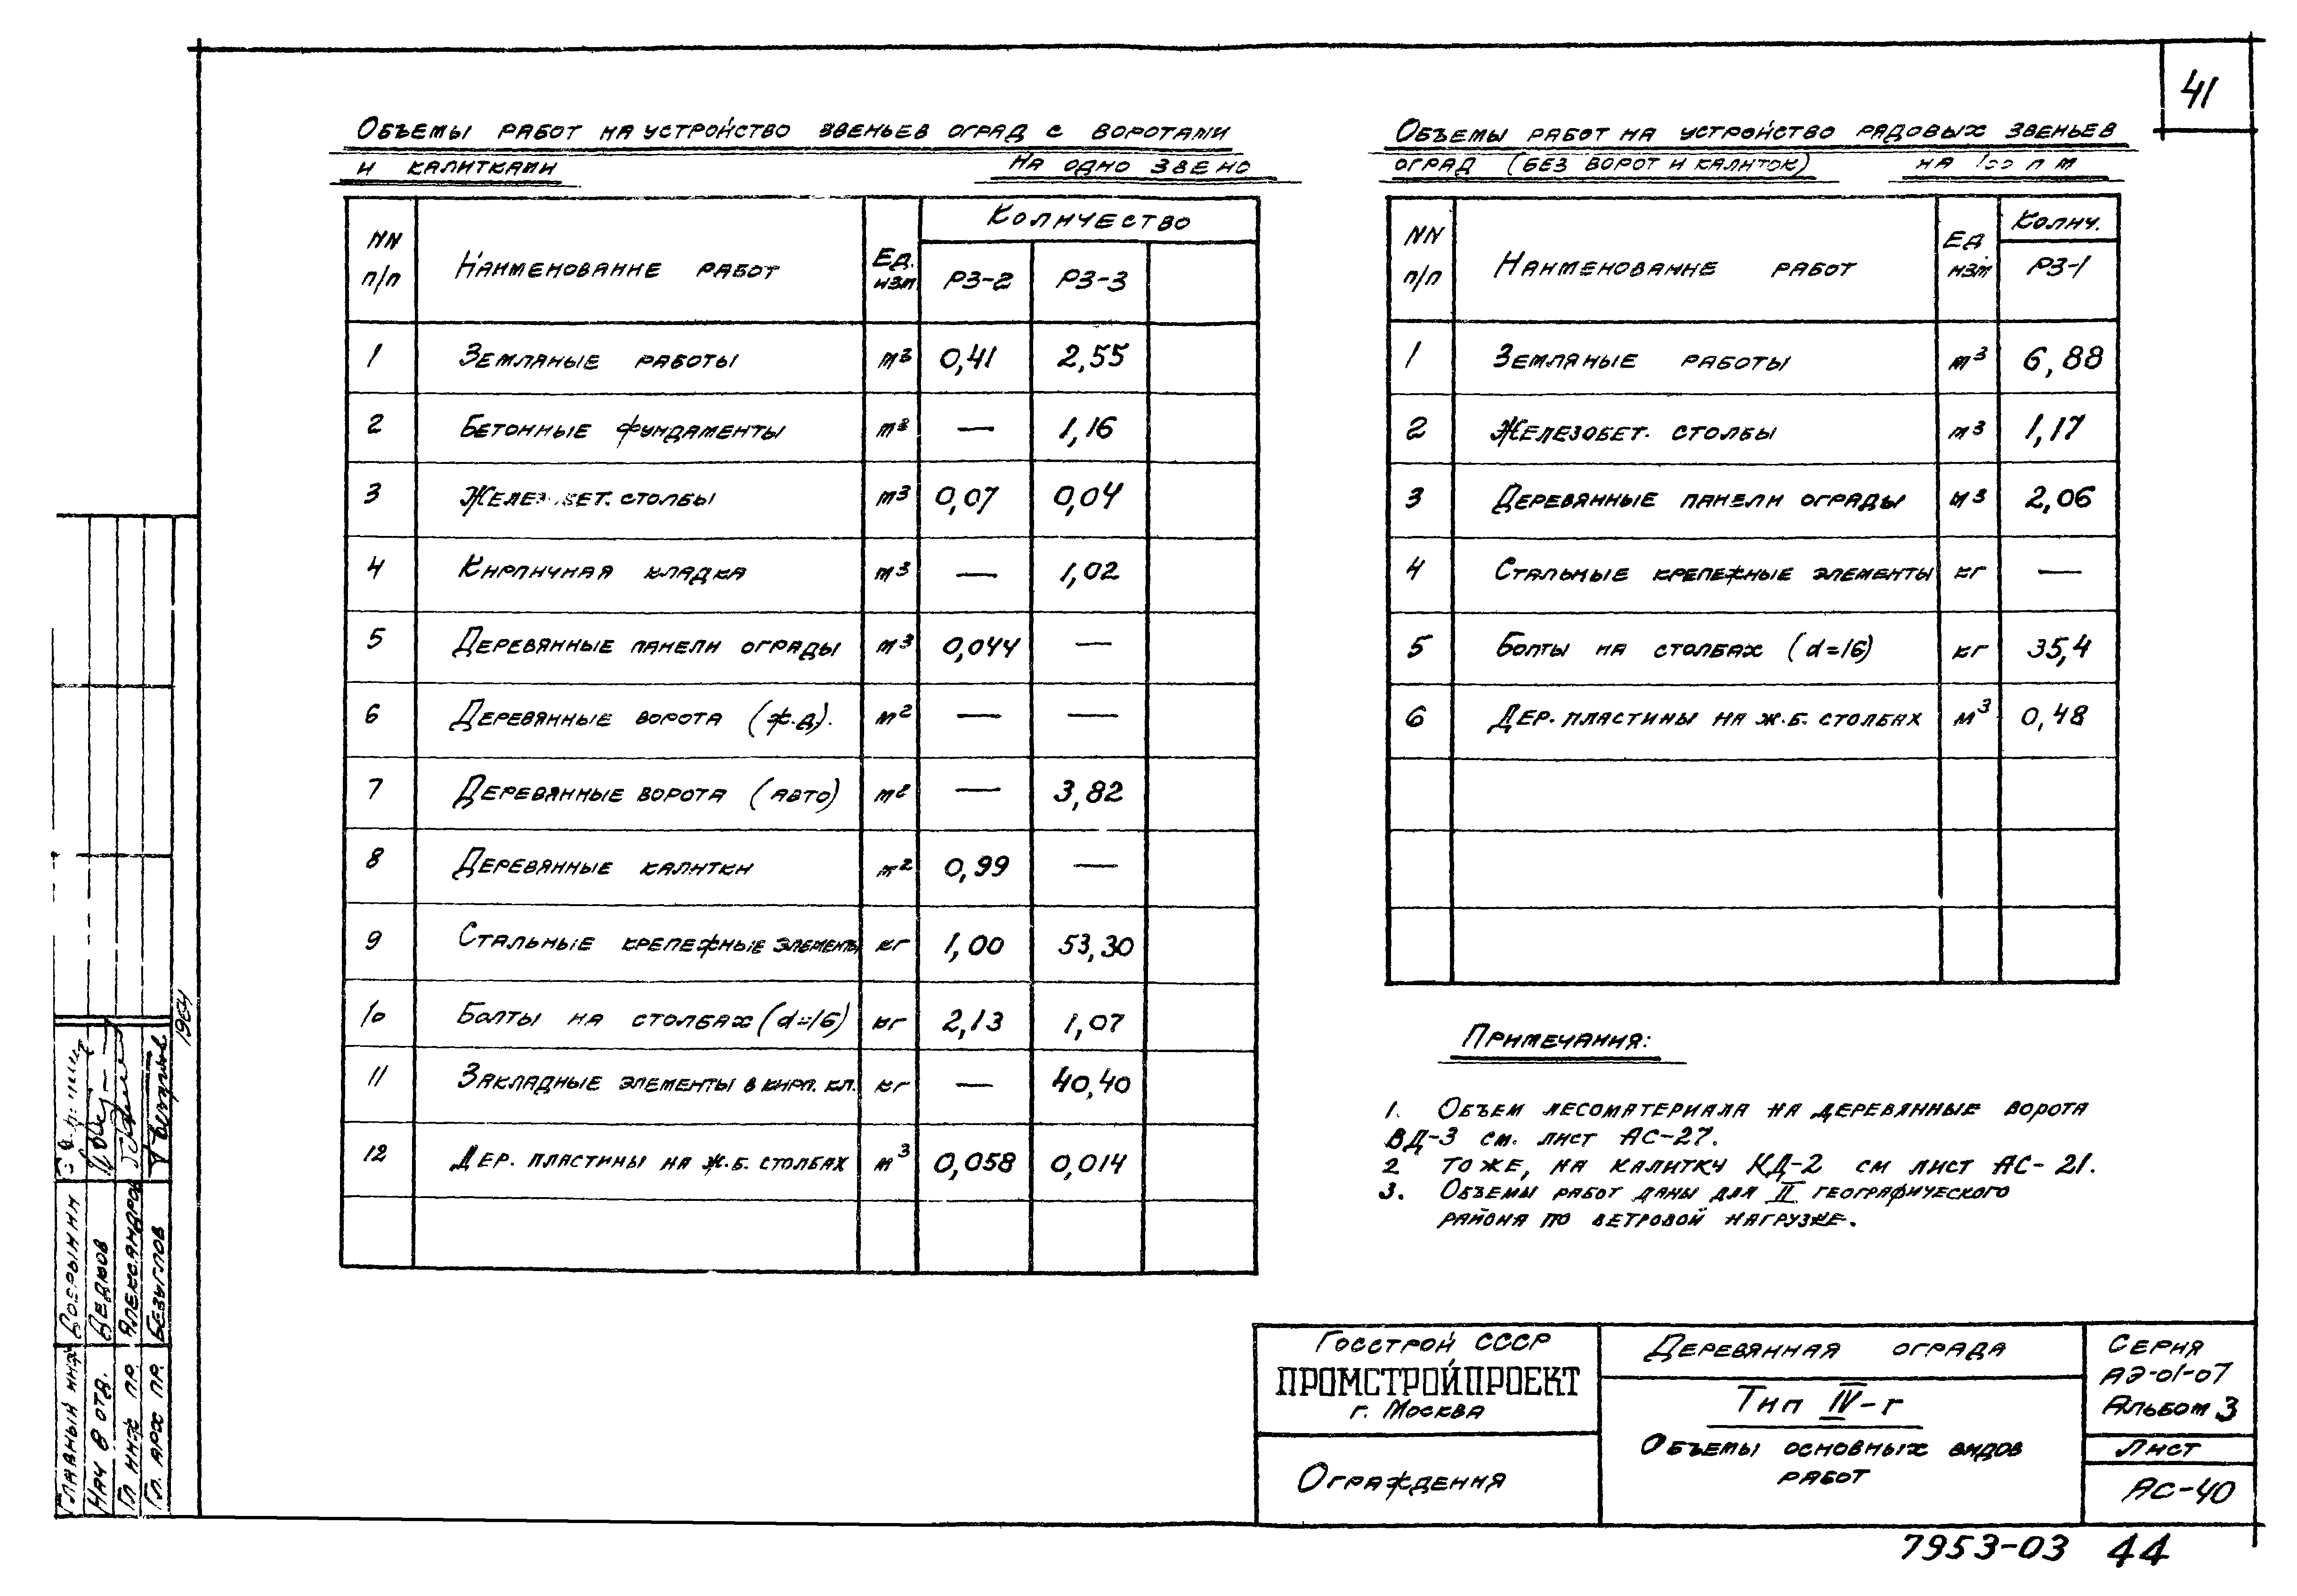 41
Объемы работ на устройство звеньев оград с воротами
и калитками На одно звено
NN п/п Наименование работ Ед. изм Количество
РЗ-2 РЗ-3
1 Земляные работы м3 0,41 2,55
2 Бетонные фундаменты м3 — 1,16
3 столбы м3 0,07 0,04
4 Кирпичная кладка м3 — 1,02
5 Деревянные панели ограды м3 0,044 —
6 Деревянные ворота (ж.д). м2 — —
7 Деревянные ворота (авто) м2 — 3,82
8 Деревянные калитки м2 0,99 —
9 Стальные крепежные элементы кг 1,00 53,30
10 Болты на столбах (d=16) кг 2,13 1,07
11 Закладные элементы в кирп. кл. кг — 40,40
12 Дер. пластины на ж.б. столбах м3 0,058 0,014
Объемы работ на устройство рядовых звеньев
оград (без ворот и калиток) на 100 п м
NN п/п Наименование работ Ед изм Колич.
РЗ-1
1 Земляные работы м3 6,88
2 Железобет. столбы м3 1,17
3 Деревянные панели ограды м3 2,06
4 Стальные крепежные элементы кг —
5 Болты на столбах (d=16) кг 35,4
6 Дер. пластины на ж.б. столбах м3 0,48
Примечания:
1. Объем лесоматериала на деревянные ворота
ВД-3 см. лист АС-27.
2 Тоже, на калитку КД-2 см лист АС-21.
3. Объемы работ даны для II географического
района по ветровой нагрузке.
Госстрой СССР
ПРОМСТРОЙПРОЕКТ
г. Москва
Ограждения
Деревянная ограда
Тип IV-г
Объемы основных видов
работ
Серия
АЭ-01-07
Альбом 3
Лист
АС-40
7953-03 44
Главный инж
Нач 8 отд. Дедюов
Гл инж пр. Александров
Гл. арх пр. Безуглов
1964